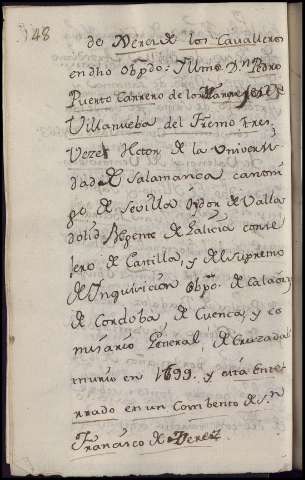 148
de Xerez de los Cavalleros
en dho Obpdo: Illmo. Dn. Pedro
Puerto Carrero de los Marqueses de
Villanueba del Fresno, tres
Vezes Rector de la Universi
dad de Salamanca canoni
go de Sevilla oydor de Valla
dolid Regente de Galicia conse
jero de Castilla, y del supremo
de Inquisicion obpo. de Calaor.
de Cordoba de Cuenca, y co
misario General, de Cruzada
murio en 1699. y está ente
rrado en un Combento de Sn.
Francisco de Xerez.